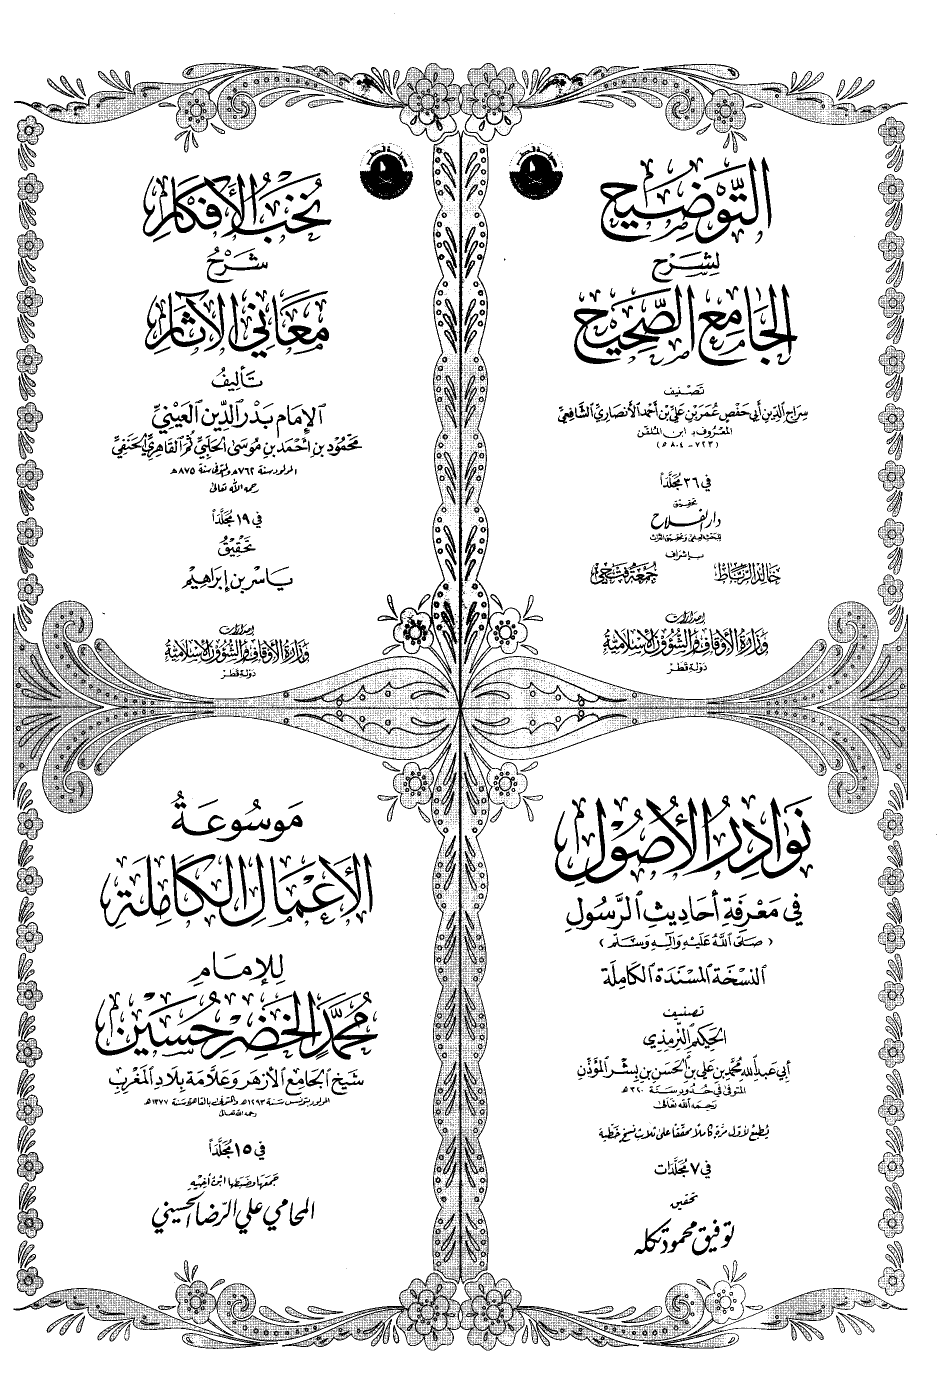 التَّوضيح
لشرح
الجامع الصَّحيح
تصنيف
سراج الدين أبي حفص عمر بن علي بن أحمد الأنصاري الشافعي
المعروف بـ ابن الملقن
(٧٢٣ - ٨٠٤ هـ)
في ٣٦ مجلَّداً
تحقيق
دار الفلاح
للبحث العلمي وتحقيق التراث
بإشراف
خالد الرباط جمعة فتحي
إصدارات
وزارة الأوقاف والشؤون الإسلامية
دولة قطر
نُخَبُ الأفكار
شَرْحُ
مَعَاني الآثار
تأليفُ
الإمام بدر الدِّين العَيْنيِّ
محمُود بن أحْمَد بن مُوسَى الحَلَبيِّ ثم القَاهِريِّ الحَنَفِيِّ
المولود سنة ٧٦٢ هـ والمتوفى سنة ٨٧٥ هـ
رحمه الله تعالى
في ١٩ مُجلَّداً
تحقِيقُ
ياسر بن إبراهيم
إصدارات
وزارة الأوقاف والشؤون الإسلامية
دولة قطر
نَوَادِرُ الأُصُولِ
في مَعْرفَةِ أحَادِيثِ الرَّسُولِ
( صَلَّى اللهُ عَلَيْهِ وَآلِهِ وَسَلَّم )
النسْخَة المسْنَدَة الكَامِلَة
تصنيف
الحكيم الترمذي
أبي عبد الله محمَّد بن علي بن الحسن بن بشر المؤذِّن
المتوفى في حدود سنة ٣١٠ هـ
رحمه الله تعالى
يُطبع لأول مرَّة كاملاً محقّقاً على ثلاث نسخ خطّية
في ٧ مُجلَّدَات
تحقيق
توفيق محمود تكله
مَوسُوعَةُ
الأَعْمَالِ الكَامِلَةِ
للإمَامِ
مُحمَّد الخَضِر حُسَيْن
شيخ الجامع الأزهر وعَلَّامَة بلاد المَغْربِ
المولود بتونس سنة ١٢٩٣ هـ والمتوفى بالقاهرة سنة ١٣٧٧ هـ
رحمه الله تعالى
في ١٥ مُجلَّداً
جمعها وضبطها ابن أخيه
المحامي علي الرّضا الحسيني